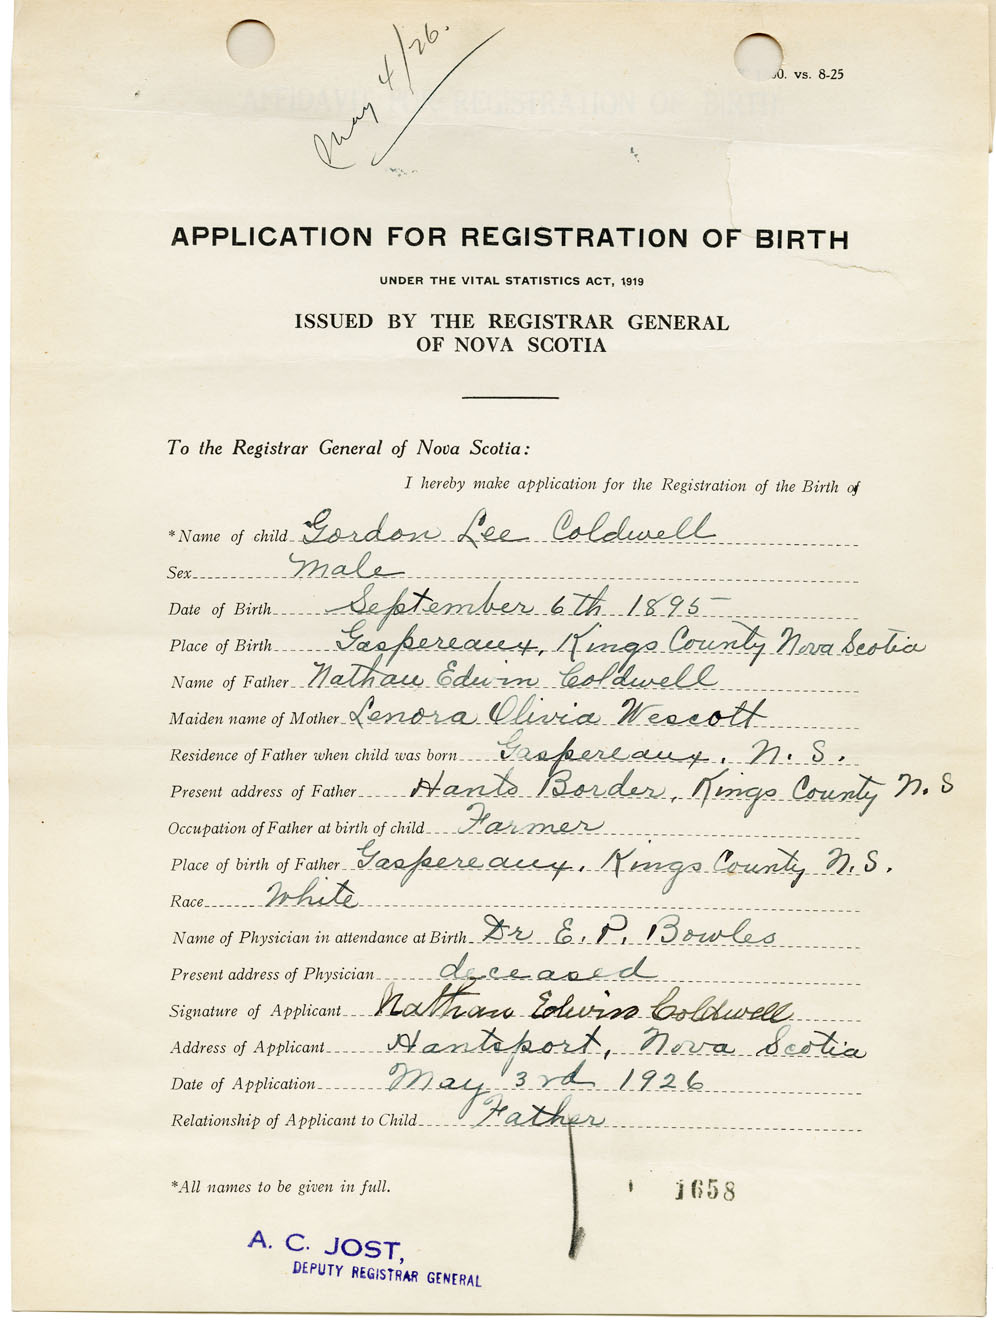 May 4/26.
vs. 8-25
APPLICATION FOR REGISTRATION OF BIRTH
UNDER THE VITAL STATISTICS ACT, 1919
ISSUED BY THE REGISTRAR GENERAL
OF NOVA SCOTIA
To the Registrar General of Nova Scotia:
I hereby make application for the Registration of the Birth of
*Name of child Gordon Lee Coldwell
Sex Male
Date of Birth September 6th 1895
Place of Birth Gaspereaux, Kings County Nova Scotia
Name of Father Nathan Edwin Coldwell
Maiden name of Mother Lenora Olivia Wescott
Residence of Father when child was born Gaspereaux, N. S.
Present address of Father Hants Border, Kings County N. S
Occupation of Father at birth of child Farmer
Place of birth of Father Gaspereaux, Kings County N. S.
Race White
Name of Physician in attendance at Birth Dr E. P. Bowles
Present address of Physician deceased
Signature of Applicant Nathan Edwin Coldwell
Address of Applicant Hantsport, Nova Scotia
Date of Application May 3rd 1926
Relationship of Applicant to Child Father
*All names to be given in full.
1658
A. C. JOST,
DEPUTY REGISTRAR GENERAL